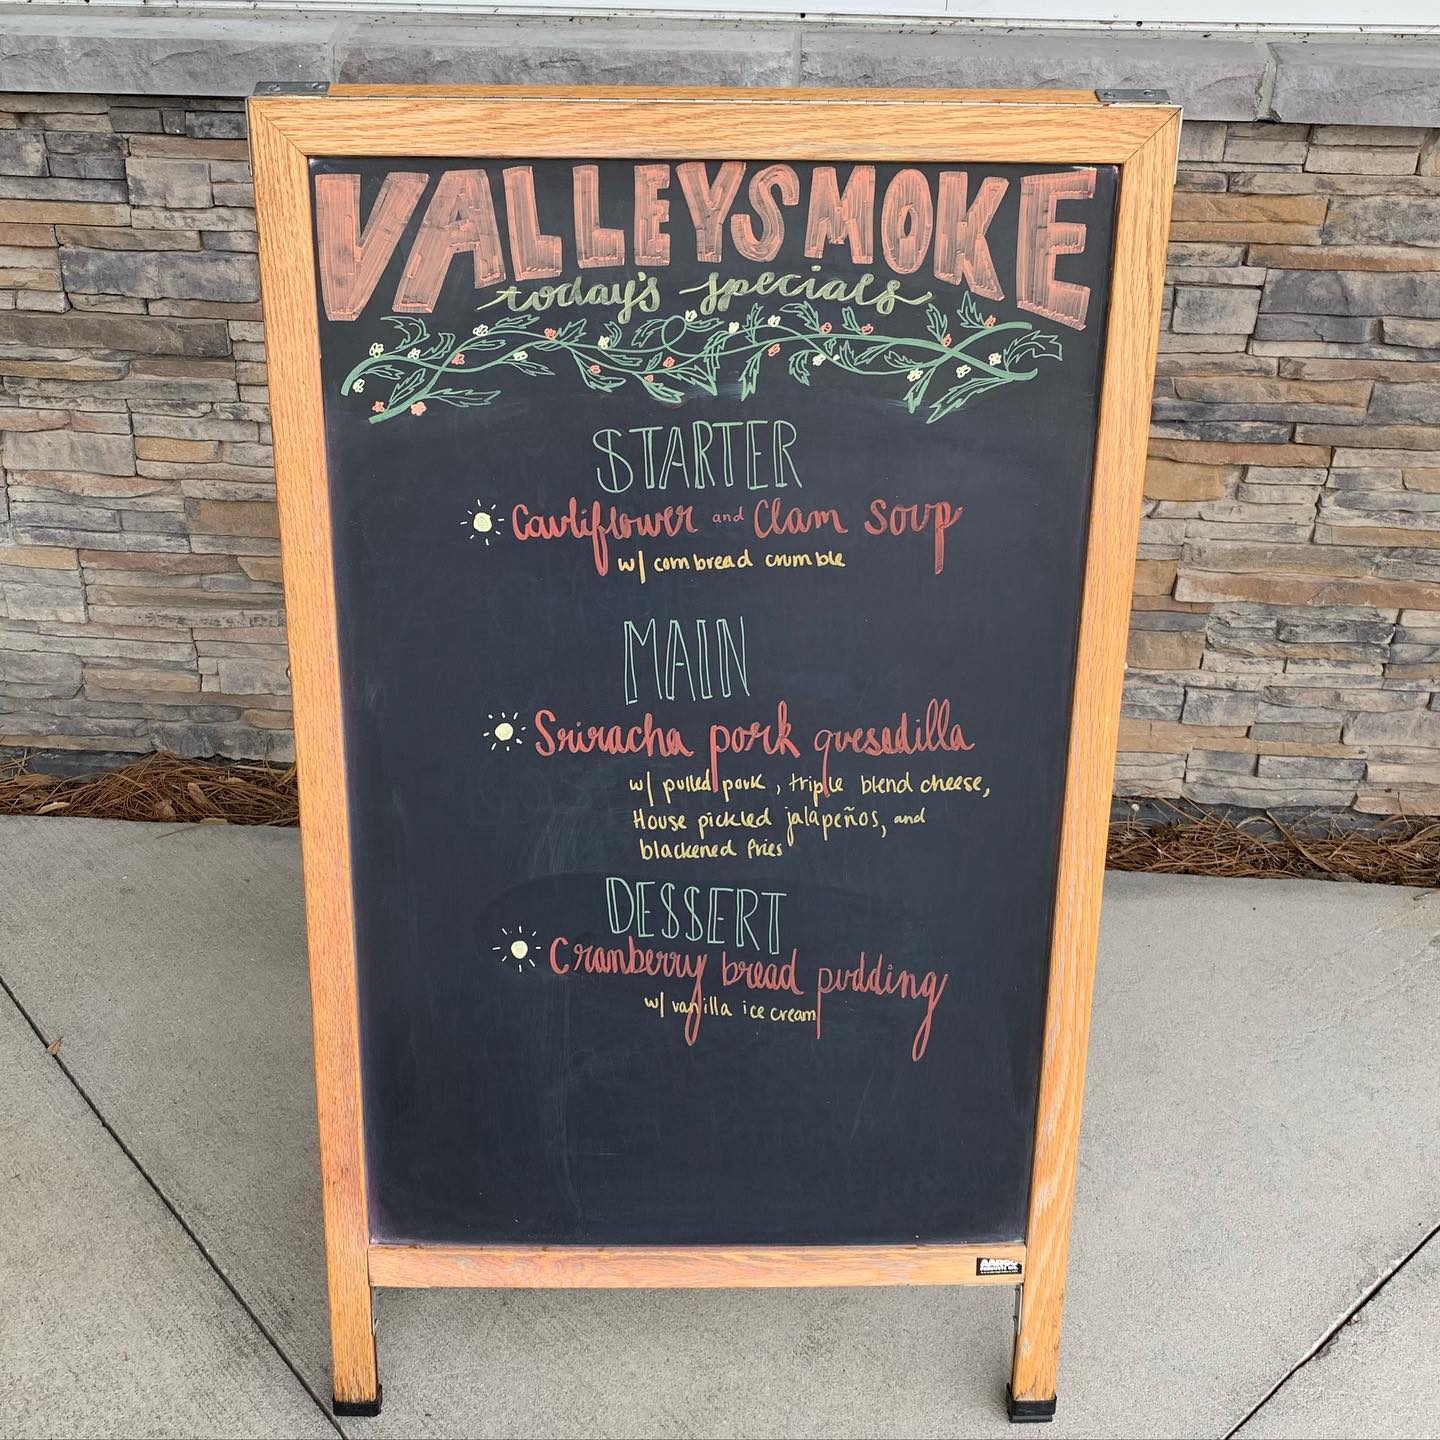 VALLEYSMOKE
today's specials
STARTER
Cauliflower and Clam Soup
w/ cornbread crumble
MAIN
Sriracha pork quesadilla
w/ pulled pork, triple blend cheese,
House pickled jalapeños, and
blackened fries
DESSERT
Cranberry bread pudding
w/ vanilla ice cream
AARCO
PRODUCTS INC.